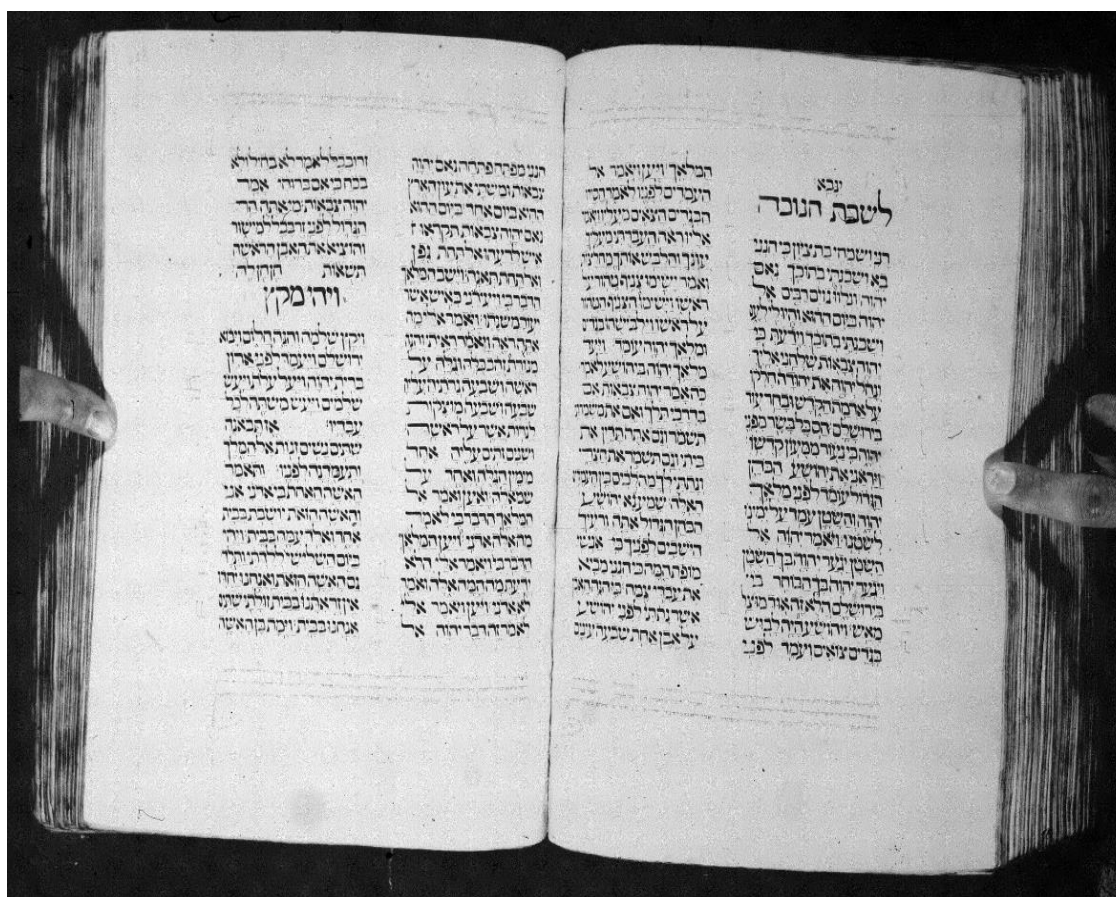 לשבת חנוכה
רני ושמחי בת ציון כי הנני
בא ושכנתי בתוכך נאם
יהוה ונלוו גוים רבים אל
יהוה ביום ההוא והיו לי לעם
ושכנתי בתוכך וידעת כי
יהוה צבאות שלחני אליך
ונחל יהוה את יהודה חלקו
על אדמת הקדש ובחר עוד
בירושלם הס כל בשר מפני
יהוה כי נעור ממעון קדשו
ויראני את יהושע הכהן
הגדול עומד לפני מלאך
יהוה והשטן עמד על ימינו
לשטנו ויאמר יהוה אל
השטן יגער יהוה בך השטן
ויגער יהוה בך הבוחר בי
בירושלם הלא זה אוד מוצל
מאש ויהושע היה לבוש
בגדים צואים ועמד לפני
המלאך ויען ויאמר אל
העמדים לפניו לאמר הסירו
הבגדים הצאים מעליו ויאמר
אליו ראה העברתי מעליך
עונך והלבש אותך מחלצות
ואמר ישימו צניף טהור על
ראשו וישימו הצניף הטהור
על ראשו וילבישהו בגדים
ומלאך יהוה עומד ויעד
מלאך יהוה ביהושע לאמר
כה אמר יהוה צבאות אם
בדרכי תלך ואם את משמרתי
תשמר וגם אתה תדין את
ביתי וגם תשמר את חצרי
ונתתי לך מהלכים בין העמדים
האלה שמע נא יהושע
הכהן הגדול אתה ורעיך
הישבים לפניך כי אנשי
מופת המה כי הנני מביא
את עבדי צמח כי הנה האבן
אשר נתתי לפני יהושע
על אבן אחת שבעה עינים
הנני מפתח פתחה נאם יהוה
צבאות ומשתי את עון הארץ
ההיא ביום אחד ביום ההוא
נאם יהוה צבאות תקראו
איש לרעהו אל תחת גפן
ואל תחת תאנה וישב המלאך
הדבר בי ויעירני כאיש אשר
יעור משנתו ויאמר אלי מה
אתה ראה ויאמר ראיתי והנה
מנורת זהב כלה וגלה על
ראשה ושבעה נרתיה עליה
שבעה ושבעה מוצקות
לנרות אשר על ראשה
ושנים זיתים עליה אחד
מימין הגלה ואחד על
שמאלה ואען ואמר אל
המלאך הדבר בי לאמר
מה אלה אדני ויען המלאך
הדבר בי ויאמר אלי הלא
ידעת מה המה אלה ואמר
לא אדני ויען ויאמר אלי
לאמר זה דבר יהוה אל
זרובבל לאמר לא בחיל ולא
בכח כי אם ברוחי אמר
יהוה צבאות מי אתה הר
הגדול לפני זרבבל למישור
והוציא את האבן הראשה
תשאות חן חן לה
ויהי מקץ
ויקץ שלמה והנה חלום ויבא
ירושלם ויעמד לפני ארון
ברית יהוה ויעל עלות ויעש
שלמים ויעש משתה לכל
עבדיו אז תבאנה
שתים נשים זנות אל המלך
ותעמדנה לפניו ותאמר
האשה האחת בי אדני אני
והאשה הזאת ישבת בבית
אחד ואלד עמה בבית ויהי
ביום השלישי ללדתי ותלד
גם האשה הזאת ואנחנו יחדו
אין זר אתנו בבית זולתי שתים
אנחנו בבית וימת בן האשה